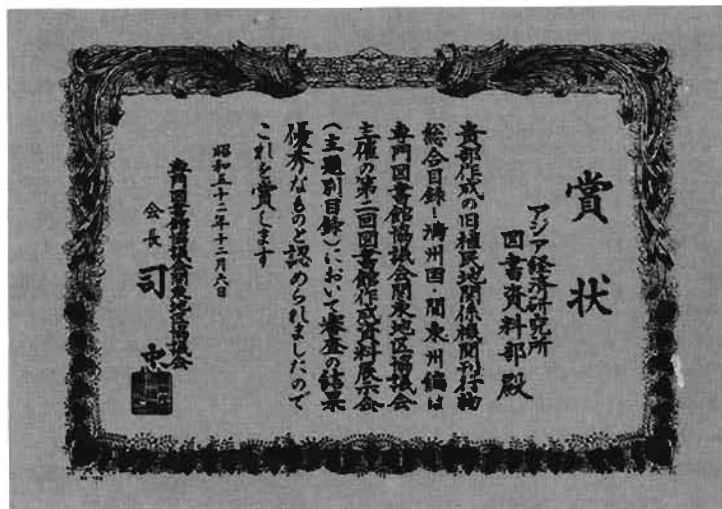 賞状
アジア経済研究所
図書資料部殿
貴部作成の旧植民地関係機関刊行物
総合目録－満州国・関東州編は
専門図書館協議会関東地区協議会
主催の第二回図書館作成資料展示会
(主題別目録)において審査の結果
優秀なものと認められましたので
これを賞します
昭和五十二年十二月六日
専門図書館協議会関東地区協議会
会長 司 忠